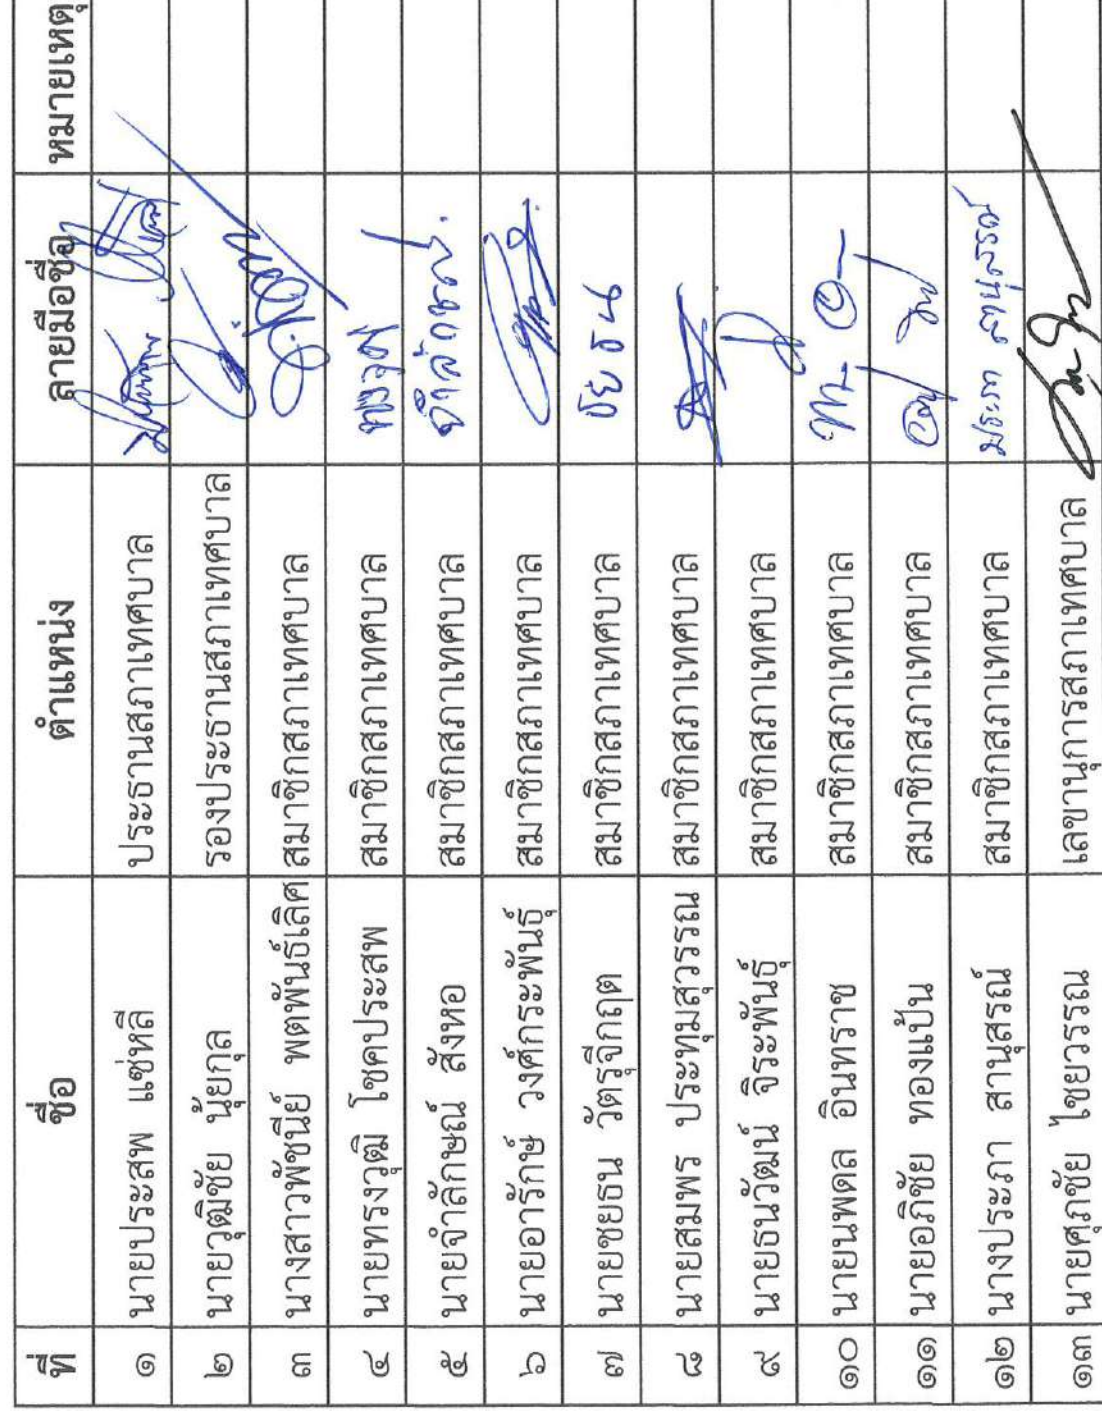 ที่ ชื่อ ตำแหน่ง ลายมือชื่อ หมายเหตุ
๑ นายประสพ แซ่หลี ประธานสภาเทศบาล
๒ นายวุฒิชัย นุ้ยกุล รองประธานสภาเทศบาล
๓ นางสาวพัชนีย์ พตพันธ์เลิศ สมาชิกสภาเทศบาล
๔ นายทรงวุฒิ โชคประสพ สมาชิกสภาเทศบาล ทรงวุฒิ
๕ นายจำลักษณ์ สังหอ สมาชิกสภาเทศบาล จำลักษณ์
๖ นายอารักษ์ วงศ์กระพันธุ์ สมาชิกสภาเทศบาล
๗ นายชยธน วัตรุจีกฤต สมาชิกสภาเทศบาล ชยธน
๘ นายสมพร ประทุมสุวรรณ สมาชิกสภาเทศบาล
๙ นายธนวัฒน์ จิระพันธุ์ สมาชิกสภาเทศบาล
๑๐ นายนพดล อินทราช สมาชิกสภาเทศบาล
๑๑ นายอภิชัย ทองแป้น สมาชิกสภาเทศบาล
๑๒ นางประภา สานุสรณ์ สมาชิกสภาเทศบาล ประภา สานุสรณ์
๑๓ นายศุภชัย ไชยวรรณ เลขานุการสภาเทศบาล